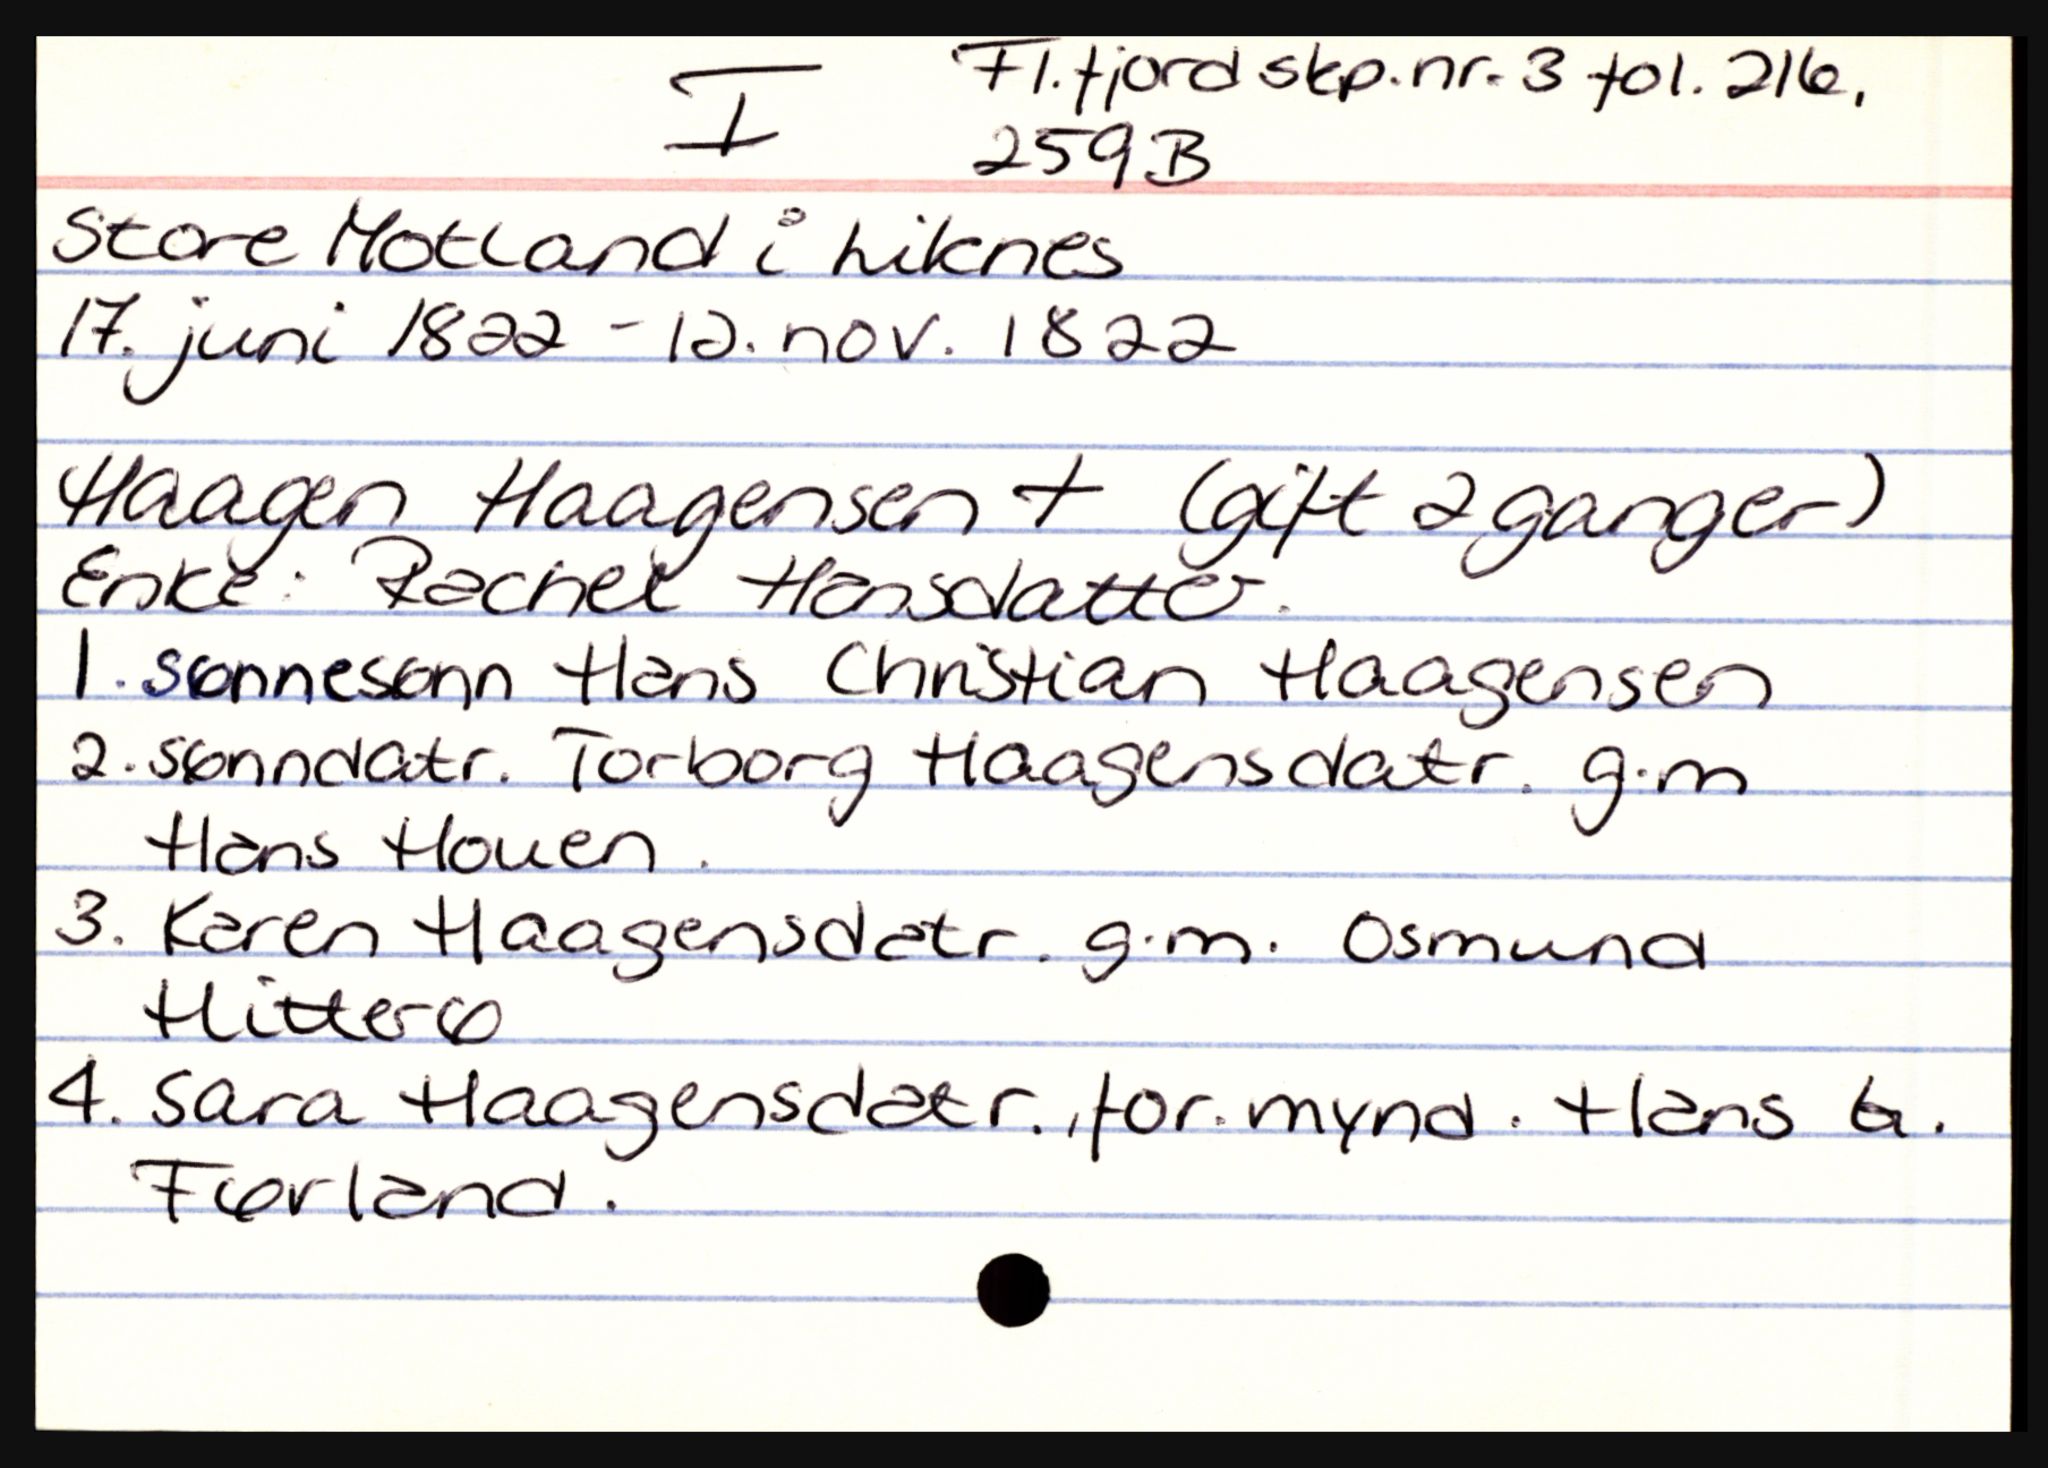 I
Fl.fjord skp.nr. 3 fol. 216,
259B
Store Motland i Liknes
17. juni 1822 - 12. nov. 1822
Haagen Haagensen + (gift 2 ganger)
Enke: Rachel Hansdatter.
1. sønnesønn Hans Christian Haagensen
2. sønndatr. Torborg Haagensdatr. g.m
Hans Houen.
3. Karen Haagensdatr. g.m. Osmund
Hitterø
4. Sara Haagensdatr., for.mynd. Hans G.
Førland.